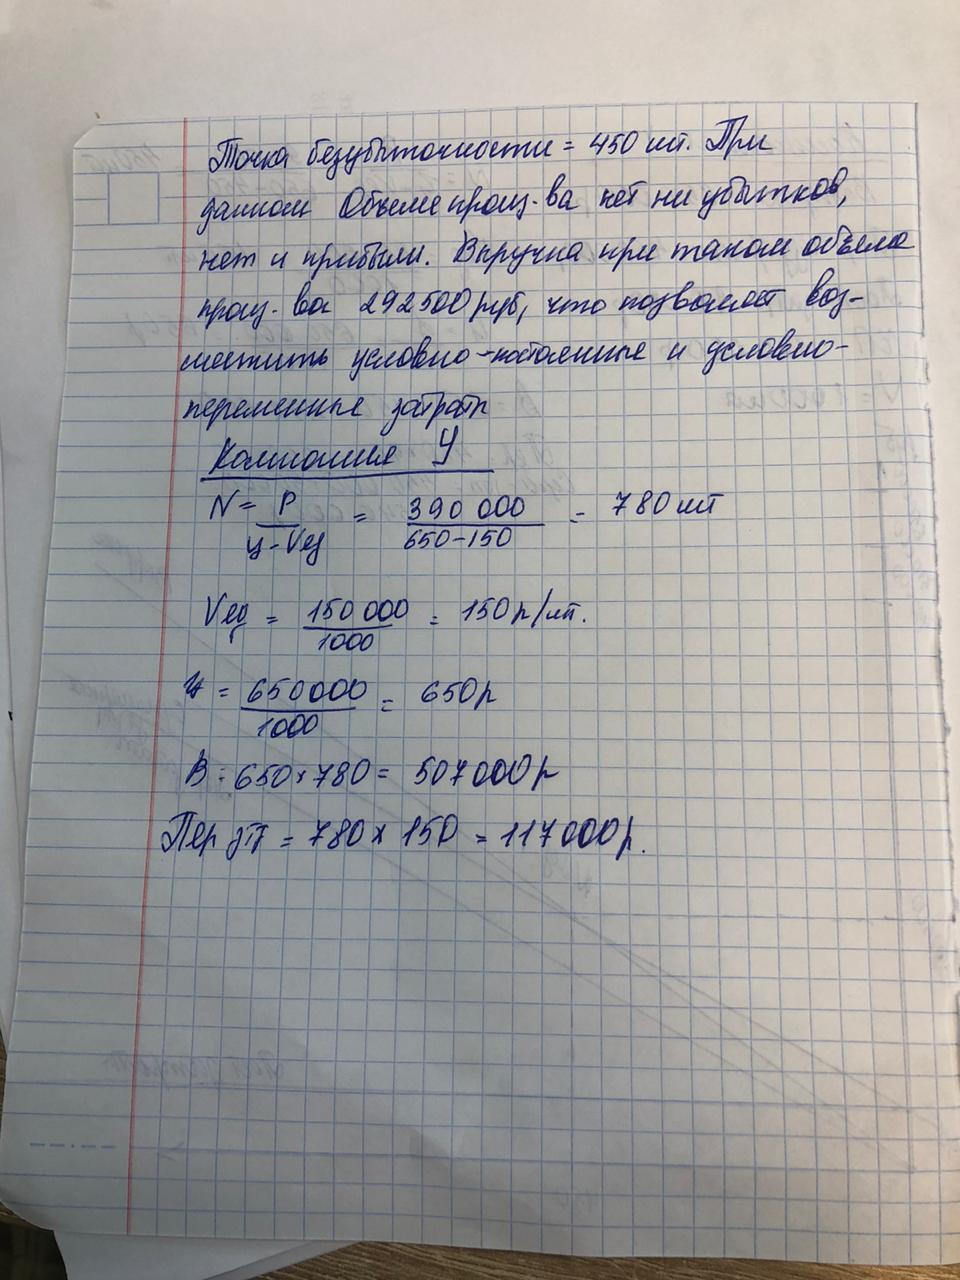 Точка безубыточности = 450 шт. При
данном Объеме произ-ва нет ни убытков,
нет и прибыли. Выручка при таком объеме
произ-ва 292500 руб, что позволяет воз-
местить условно-постоянные и условно-
переменные затраты
Компания У
N = P / ц - Vед = 390 000 / 650-150 = 780 шт
Vед = 150 000 / 1000 = 150 р/шт.
Ц = 650000 / 1000 = 650р
В = 650 × 780 = 507000р
Пер зт = 780 × 150 = 117000р.